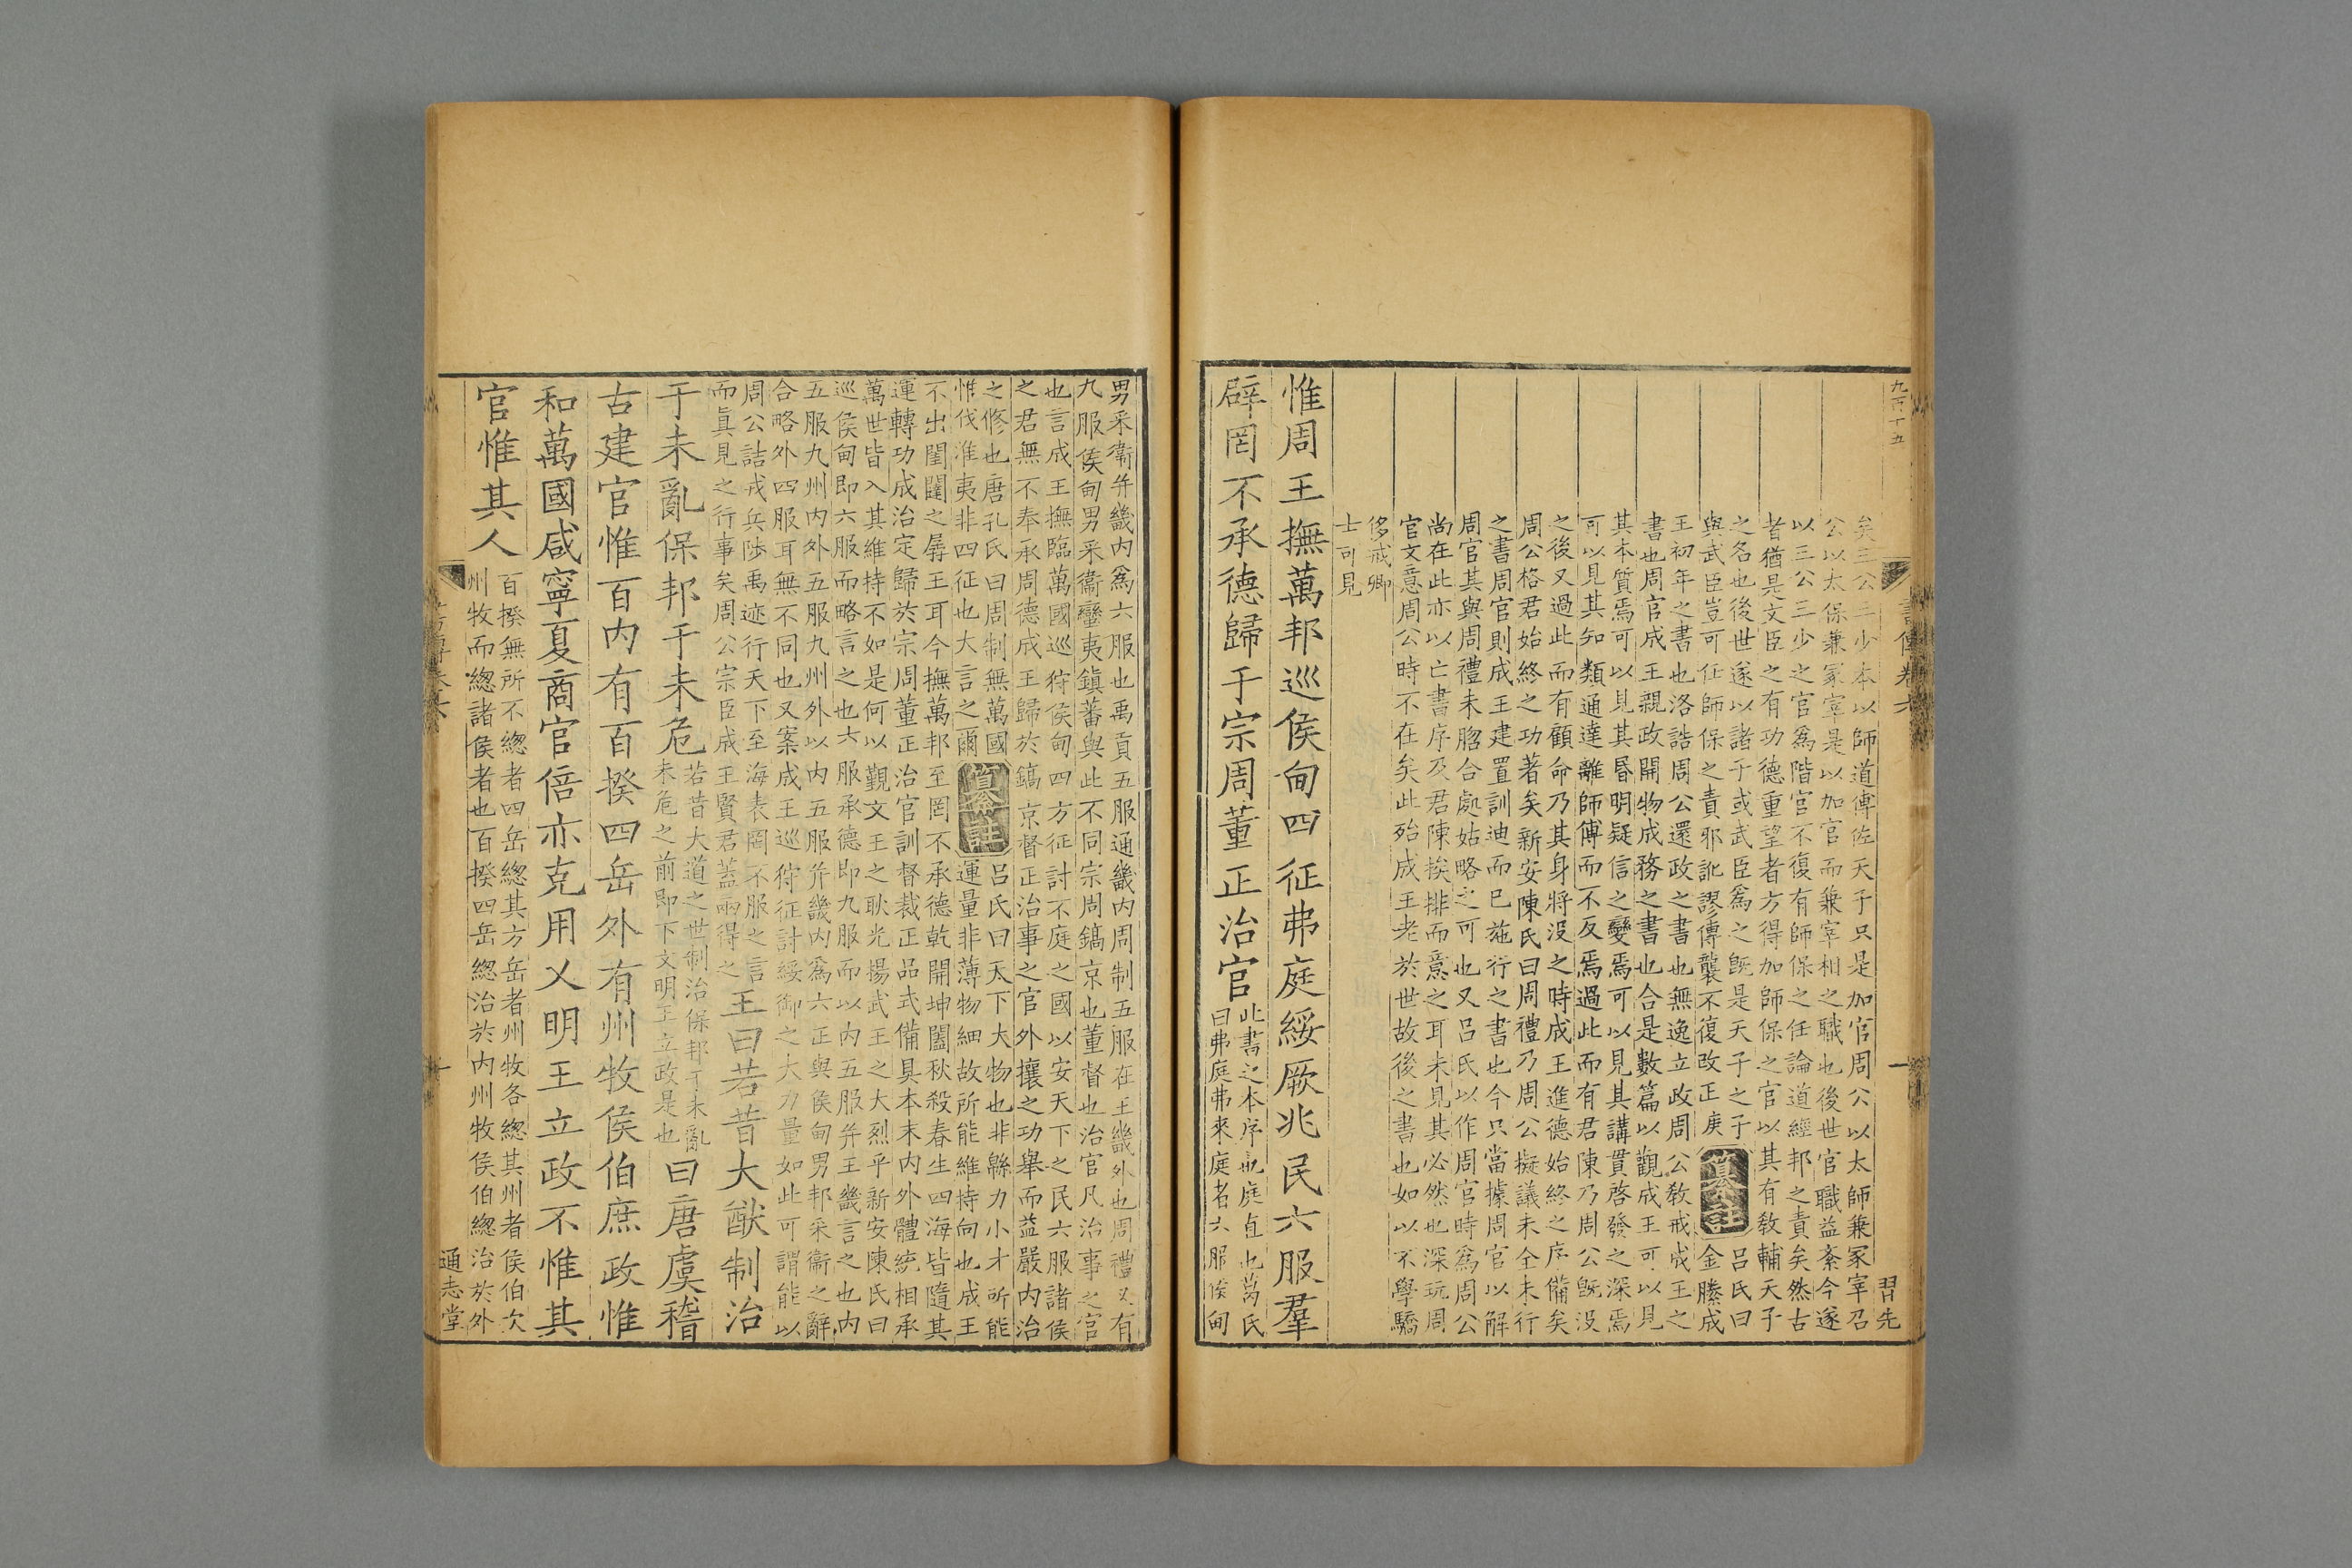 九百十五
書傳卷六
一
習先
矣三公三少本以師道傅佐天子只是加官周公以太師兼冢宰召
公以太保兼冢宰是以加官而兼宰相之職也後世官職益紊今遂
以三公三少之官爲階官不復有師保之任論道經邦之責矣然古
者猶是文臣之有功德重望者方得加師保之官以其有敎輔天子
之名也後世遂以諸子或武臣爲之旣是天子之子
與武臣豈可任師保之責邪訛謬傳襲不復改正庚
纂註
呂氏曰
金縢成
王初年之書也洛誥周公還政之書也無逸立政周公敎戒成王之
書也周官成王親政開物成務之書也合是數篇以觀成王可以見
其本質焉可以見其昬明疑信之變焉可以見其講貫啓發之深焉
可以見其知類通達離師傅而不反焉過此而有君陳乃周公旣没
之後又過此而有顧命乃其身將没之時成王進德始終之序備矣
周公格君始終之功著矣新安陳氏曰周禮乃周公擬議未全未行
之書周官則成王建置訓迪而已施行之書也今只當據周官以解
周官其與周禮未脗合處姑略之可也又呂氏以作周官時爲周公
尚在此亦以亡書序及君陳挨排而意之耳未見其必然也深玩周
官文意周公時不在矣此殆成王老於世故後之書也如以不學驕
侈戒卿
士可見
惟周王撫萬邦巡侯甸四征弗庭綏厥兆民六服羣
辟罔不承德歸于宗周董正治官
此書之本序也庭直也葛氏
曰弗庭弗來庭者六服侯甸
男采衞并畿内爲六服也禹貢五服通畿内周制五服在王畿外也周禮又有
九服侯甸男采衞蠻夷鎭蕃與此不同宗周鎬京也董督也治官凡治事之官
也言成王撫臨萬國巡狩侯甸四方征討不庭之國以安天下之民六服諸侯
之君無不奉承周德成王歸於鎬京督正治事之官外攘之功舉而益嚴内治
之修也唐孔氏曰周制無萬國
惟伐淮夷非四征也大言之爾
纂註
呂氏曰天下大物也非緜力小才所能
運量非薄物細故所能維持向也成王
不出閨闥之孱王耳今撫萬邦至罔不承德乾開坤闔秋殺春生四海皆隨其
運轉功成治定歸於宗周董正治官訓督裁正品式備具本末内外體統相承
萬世皆入其維持不如是何以覲文王之耿光揚武王之大烈乎新安陳氏曰
巡侯甸即六服而略言之也六服承德即九服而以内五服并王畿言之也内
五服九州内外五服九州外以内五服并畿内爲六正與侯甸男邦采衞之辭
合略外四服耳無不同也又案成王巡狩征討綏御之大力量如此可謂能以
周公詰戎兵陟禹迹行天下至海表罔不服之言
而眞見之行事矣周公宗臣成王賢君蓋兩得之
王曰若昔大猷制治
于未亂保邦于未危
若昔大道之世制治保邦于未亂
未危之前即下文明王立政是也
曰唐虞稽
古建官惟百内有百揆四岳外有州牧侯伯庶政惟
和萬國咸寧夏商官倍亦克用乂明王立政不惟其
官惟其人
百揆無所不總者四岳總其方岳者州牧各總其州者侯伯次
州牧而總諸侯者也百揆四岳總治於内州牧侯伯總治於外
通志堂